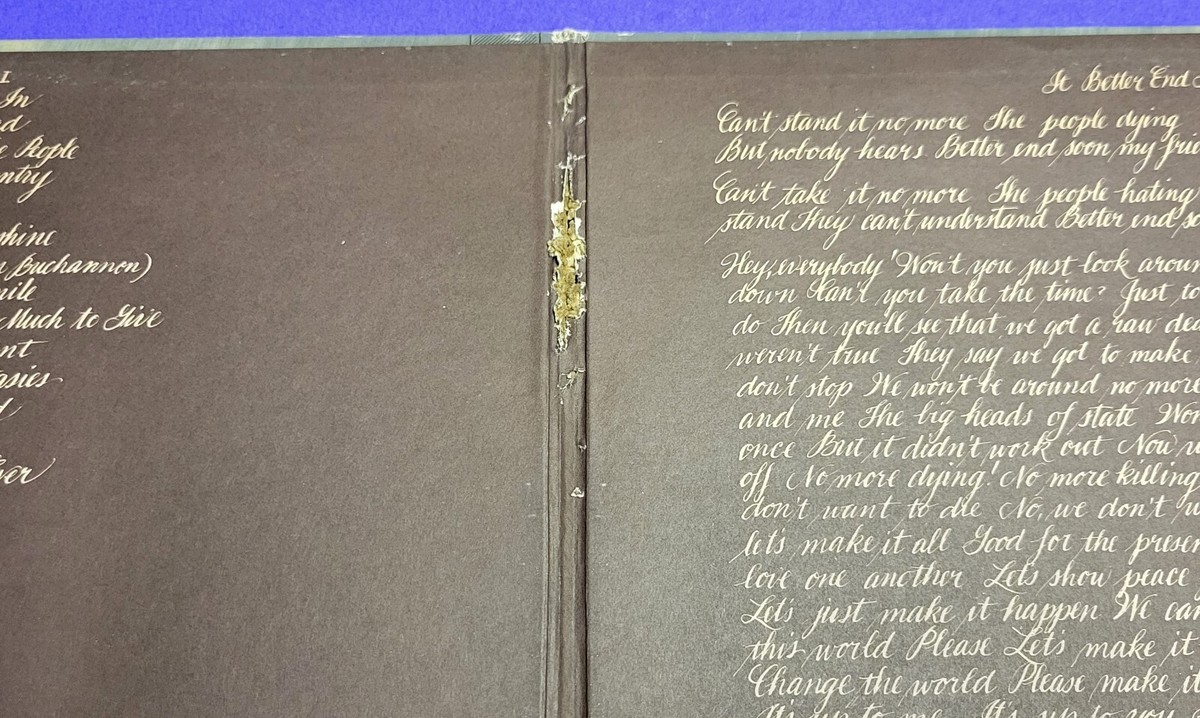 I
In
Buchannon)
Much to Give
It Better End
Can't stand it no more The people dying
But nobody hears Better end soon my
Can't take it no more The people hating
stand They can't understand Better end
Hey, everybody! Won't you just look
down Can't you take the time? Just to
do Then you'll see that we got a raw
weren't true They say we got to make
don't stop We won't be around no more
and me The big heads of state
once But it didn't work out Now
off No more dying! No more killing
don't want to die No, we don't
let's make it all Good for the
love one another Let's show peace
Let's just make it happen We
this world Please Let's make it
Change the world Please make
It's up to me It's up to you